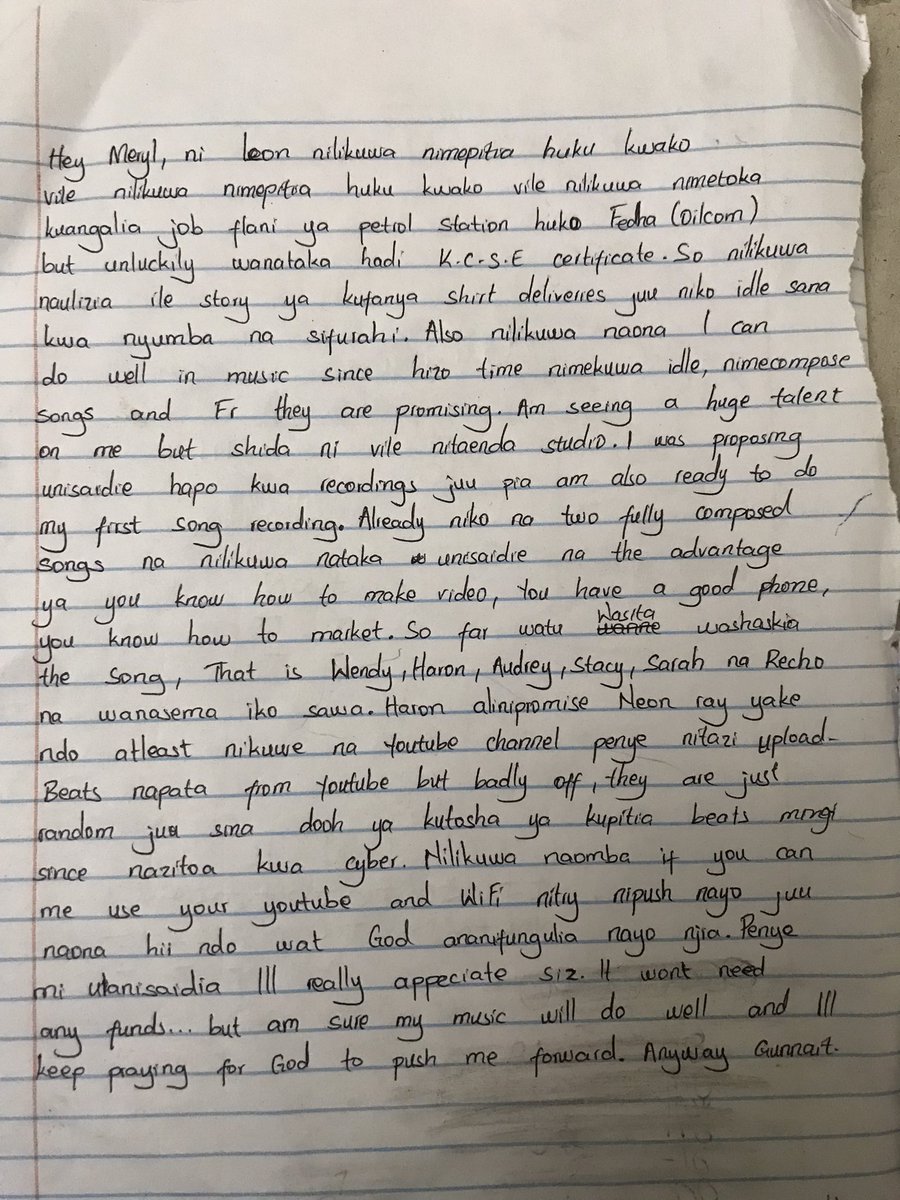 Hey Meryl, ni leon nilikuwa nimepitia huku kwako
vile nilikuwa nimepitia huku kwako vile nilikuwa nimetoka
kuangalia job flani ya petrol station huko Fedha (Oilcom)
but unluckily wanataka hadi K.C.S.E certificate. So nilikuwa
naulizia ile story ya kufanya shirt deliveries juu niko idle sana
kwa nyumba na sifurahi. Also nilikuwa naona I can
do well in music since hizo time nimekuwa idle, nimecompose
songs and Fr they are promising. Am seeing a huge talent
on me but shida ni vile nitaenda studio. I was proposing
unisaidie hapo kwa recordings juu pia am also ready to do
my first song recording. Already niko na two fully composed
songs na nilikuwa nataka unisaidie na the advantage
ya you know how to make video, You have a good phone,
you know how to market. So far watu wanne Wasita washaskia
the song, That is Wendy, Haron, Audrey, Stacy, Sarah na Recho
na wanasema iko sawa. Haron alinipromise Neon ray yake
ndo atleast nikuwe na Youtube channel penye nitazi upload-
Beats napata from Youtube but badly off, they are just
random juu sina dooh ya kutosha ya kupitia beats mingi
since nazitoa kwa cyber. Nilikuwa naomba if you can
me use your youtube and WiFi nitry nipush nayo juu
naona hii ndo wat God ananifungulia nayo njia. Penye
mi utanisaidia Ill really appeciate siz. It wont need
any funds... but am sure my music will do well and Ill
keep praying for God to push me forward. Anyway Gunnait.